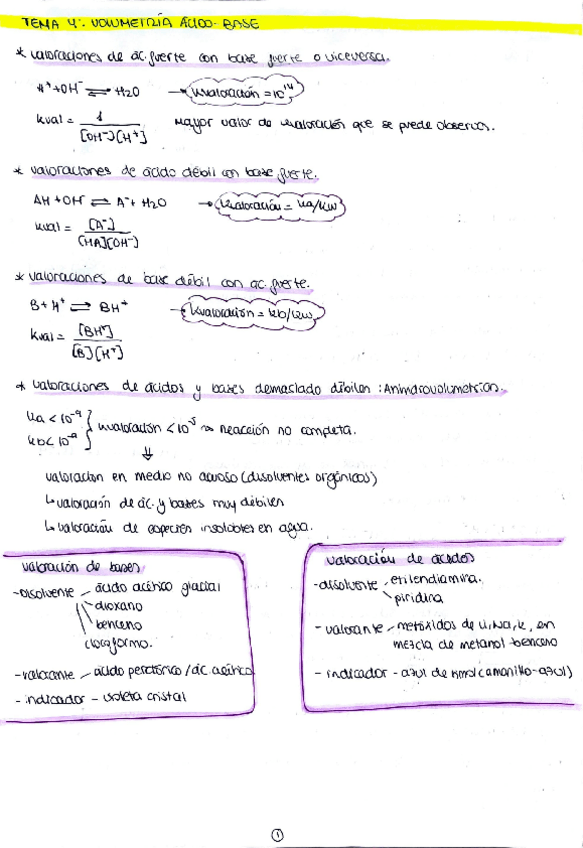 TEMA 4: VOLUMETRÍA ÁCIDO-BASE
* valoraciones de ác. fuerte con base fuerte o viceversa.
H⁺+OH⁻ ⇌ H2O → Kvaloración = 10¹⁴
Kval = 1 / [OH⁻][H⁺] Mayor valor de Kvaloración que se puede observar.
* valoraciones de ácido débil con base fuerte.
AH + OH⁻ ⇌ A⁻ + H2O → Kvaloración = Ka/Kw
Kval = [A⁻] / [HA][OH⁻]
* valoraciones de base débil con ac. fuerte.
B + H⁺ ⇌ BH⁺ → Kvaloración = Kb/Kw
Kval = [BH⁺] / [B][H⁺]
* valoraciones de ácidos y bases demasiado débiles :
Ka < 10⁻⁹
Kb < 10⁻⁹ } Kvaloración < 10⁻⁵ → Reacción no completa.
⇓
valoracion en medio no acuoso (disolventes orgánicos)
↳ valoración de ác. y bases muy débiles
↳ valoración de especies insolubles en agua.
valoración de bases
- Disolvente - ácido acético glacial
dioxano
benceno
cloroformo.
- valorante - ácido perclórico / ác. acético
- indicador - violeta cristal
valoración de ácidos
- disolvente - etilendiamina.
piridina
- valorante - metóxidos de Li, Na, K, en
mezcla de metanol-benceno
- indicador - azul de timol (amarillo-azul)
1